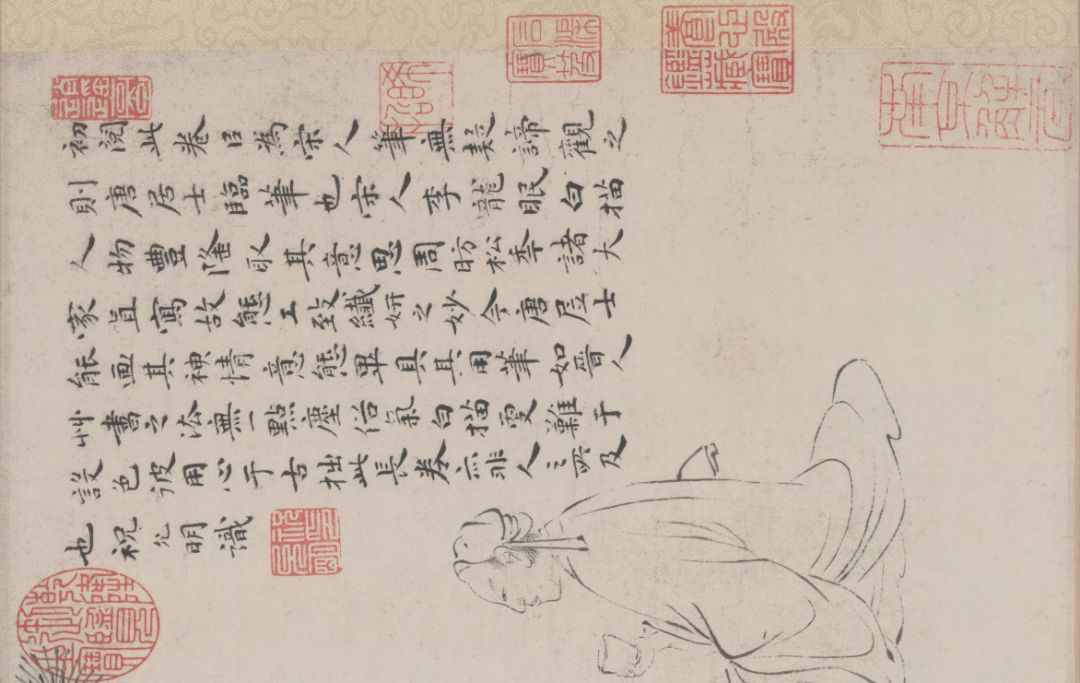 初閱此卷㠯為宋人筆無疑諦觀之
則唐居士臨筆也宋人李龍眠白描
人物豐隆取其意思周昉松年諸大
家且寫故態工致纖妍之妙今唐居士
能畫其神情意態畢具其用筆如晉人
艸書之法無一點塵俗氣白描更難于
設色彼用心于古拙此長卷亦非人之所及
也祝允明識